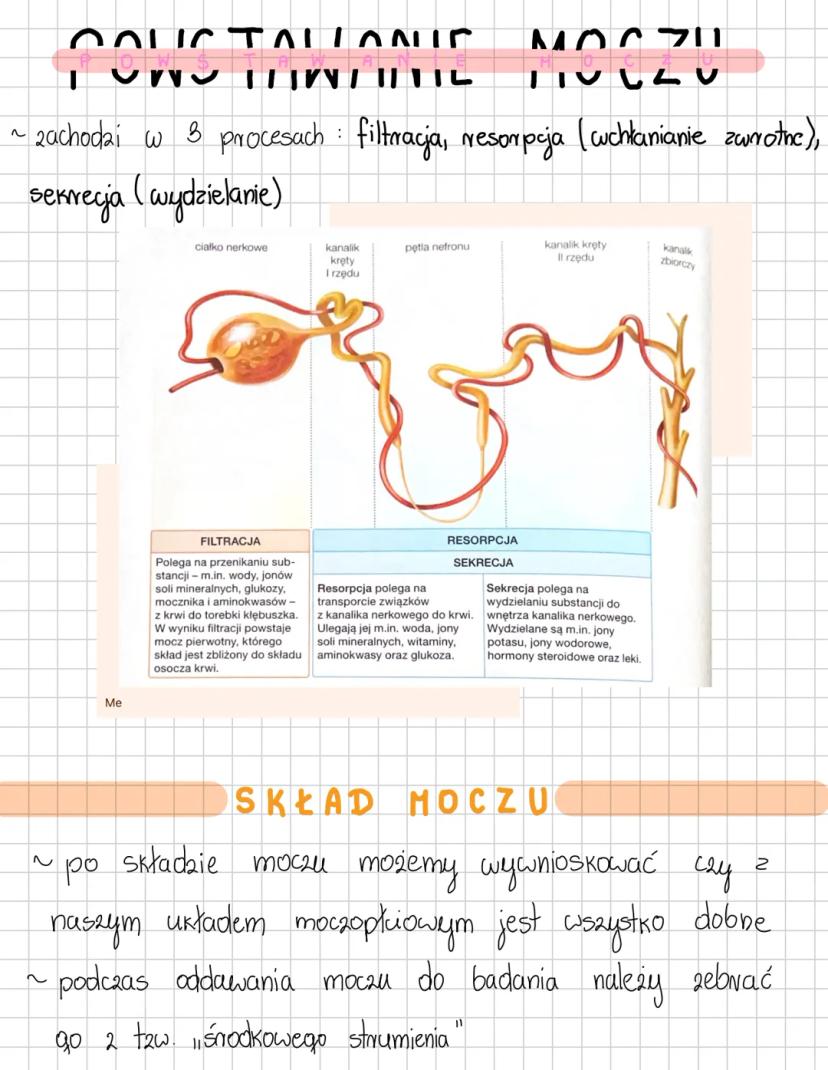 POWSTAWANIE MOCZU
~ zachodzi w 3 procesach : filtracja, resorpcja (wchłanianie zwrotne),
sekrecja (wydzielanie)
ciałko nerkowe
kanalik
kręty
I rzędu
pętla nefronu
kanalik kręty
II rzędu
kanalik
zbiorczy
FILTRACJA
Polega na przenikaniu sub-
stancji – m.in. wody, jonów
soli mineralnych, glukozy,
mocznika i aminokwasów –
z krwi do torebki kłębuszka.
W wyniku filtracji powstaje
mocz pierwotny, którego
skład jest zbliżony do składu
osocza krwi.
RESORPCJA
SEKRECJA
Resorpcja polega na
transporcie związków
z kanalika nerkowego do krwi.
Ulegają jej m.in. woda, jony
soli mineralnych, witaminy,
aminokwasy oraz glukoza.
Sekrecja polega na
wydzielaniu substancji do
wnętrza kanalika nerkowego.
Wydzielane są m.in. jony
potasu, jony wodorowe,
hormony steroidowe oraz leki.
Me
SKŁAD MOCZU
~ po składzie moczu możemy wywnioskować czy z
naszym układem moczopłciowym jest wszystko dobre
~ podczas oddawania moczu do badania należy zebrać
go z tzw. „środkowego strumienia"